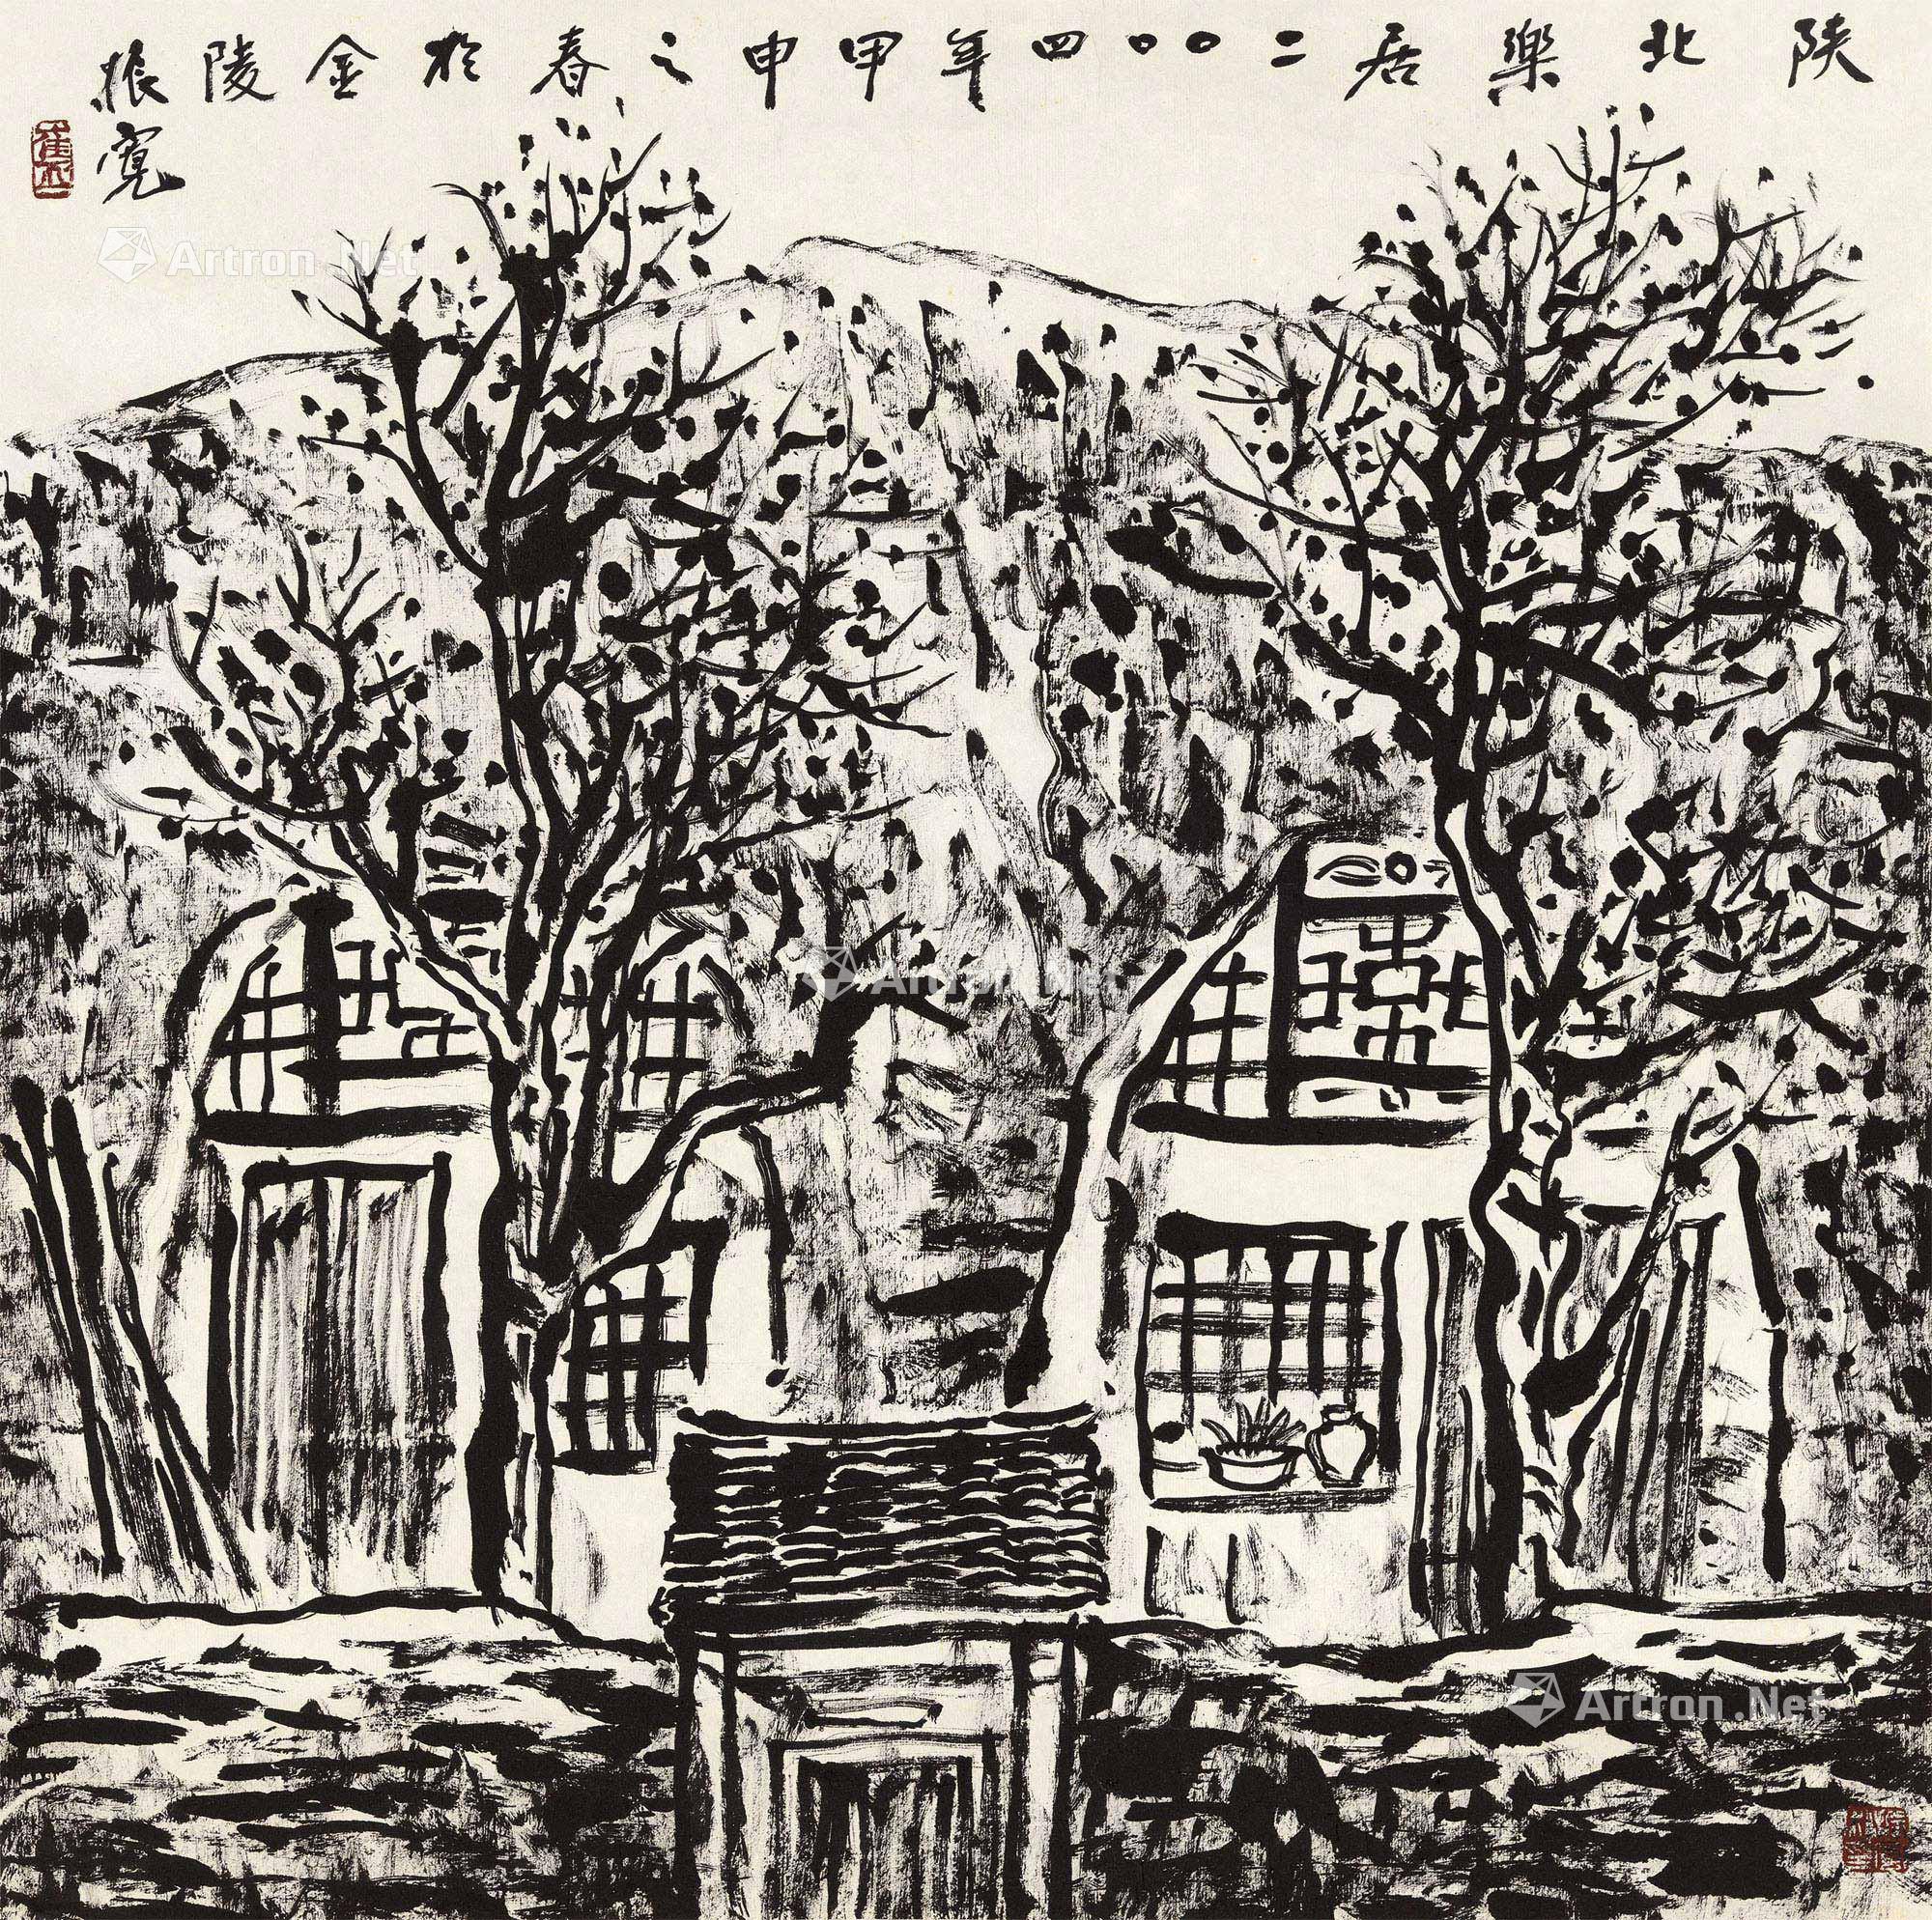 陝北樂居二〇〇四年甲申之春於金陵振寬
Artron.Net
Artron.Net
Artron.Net